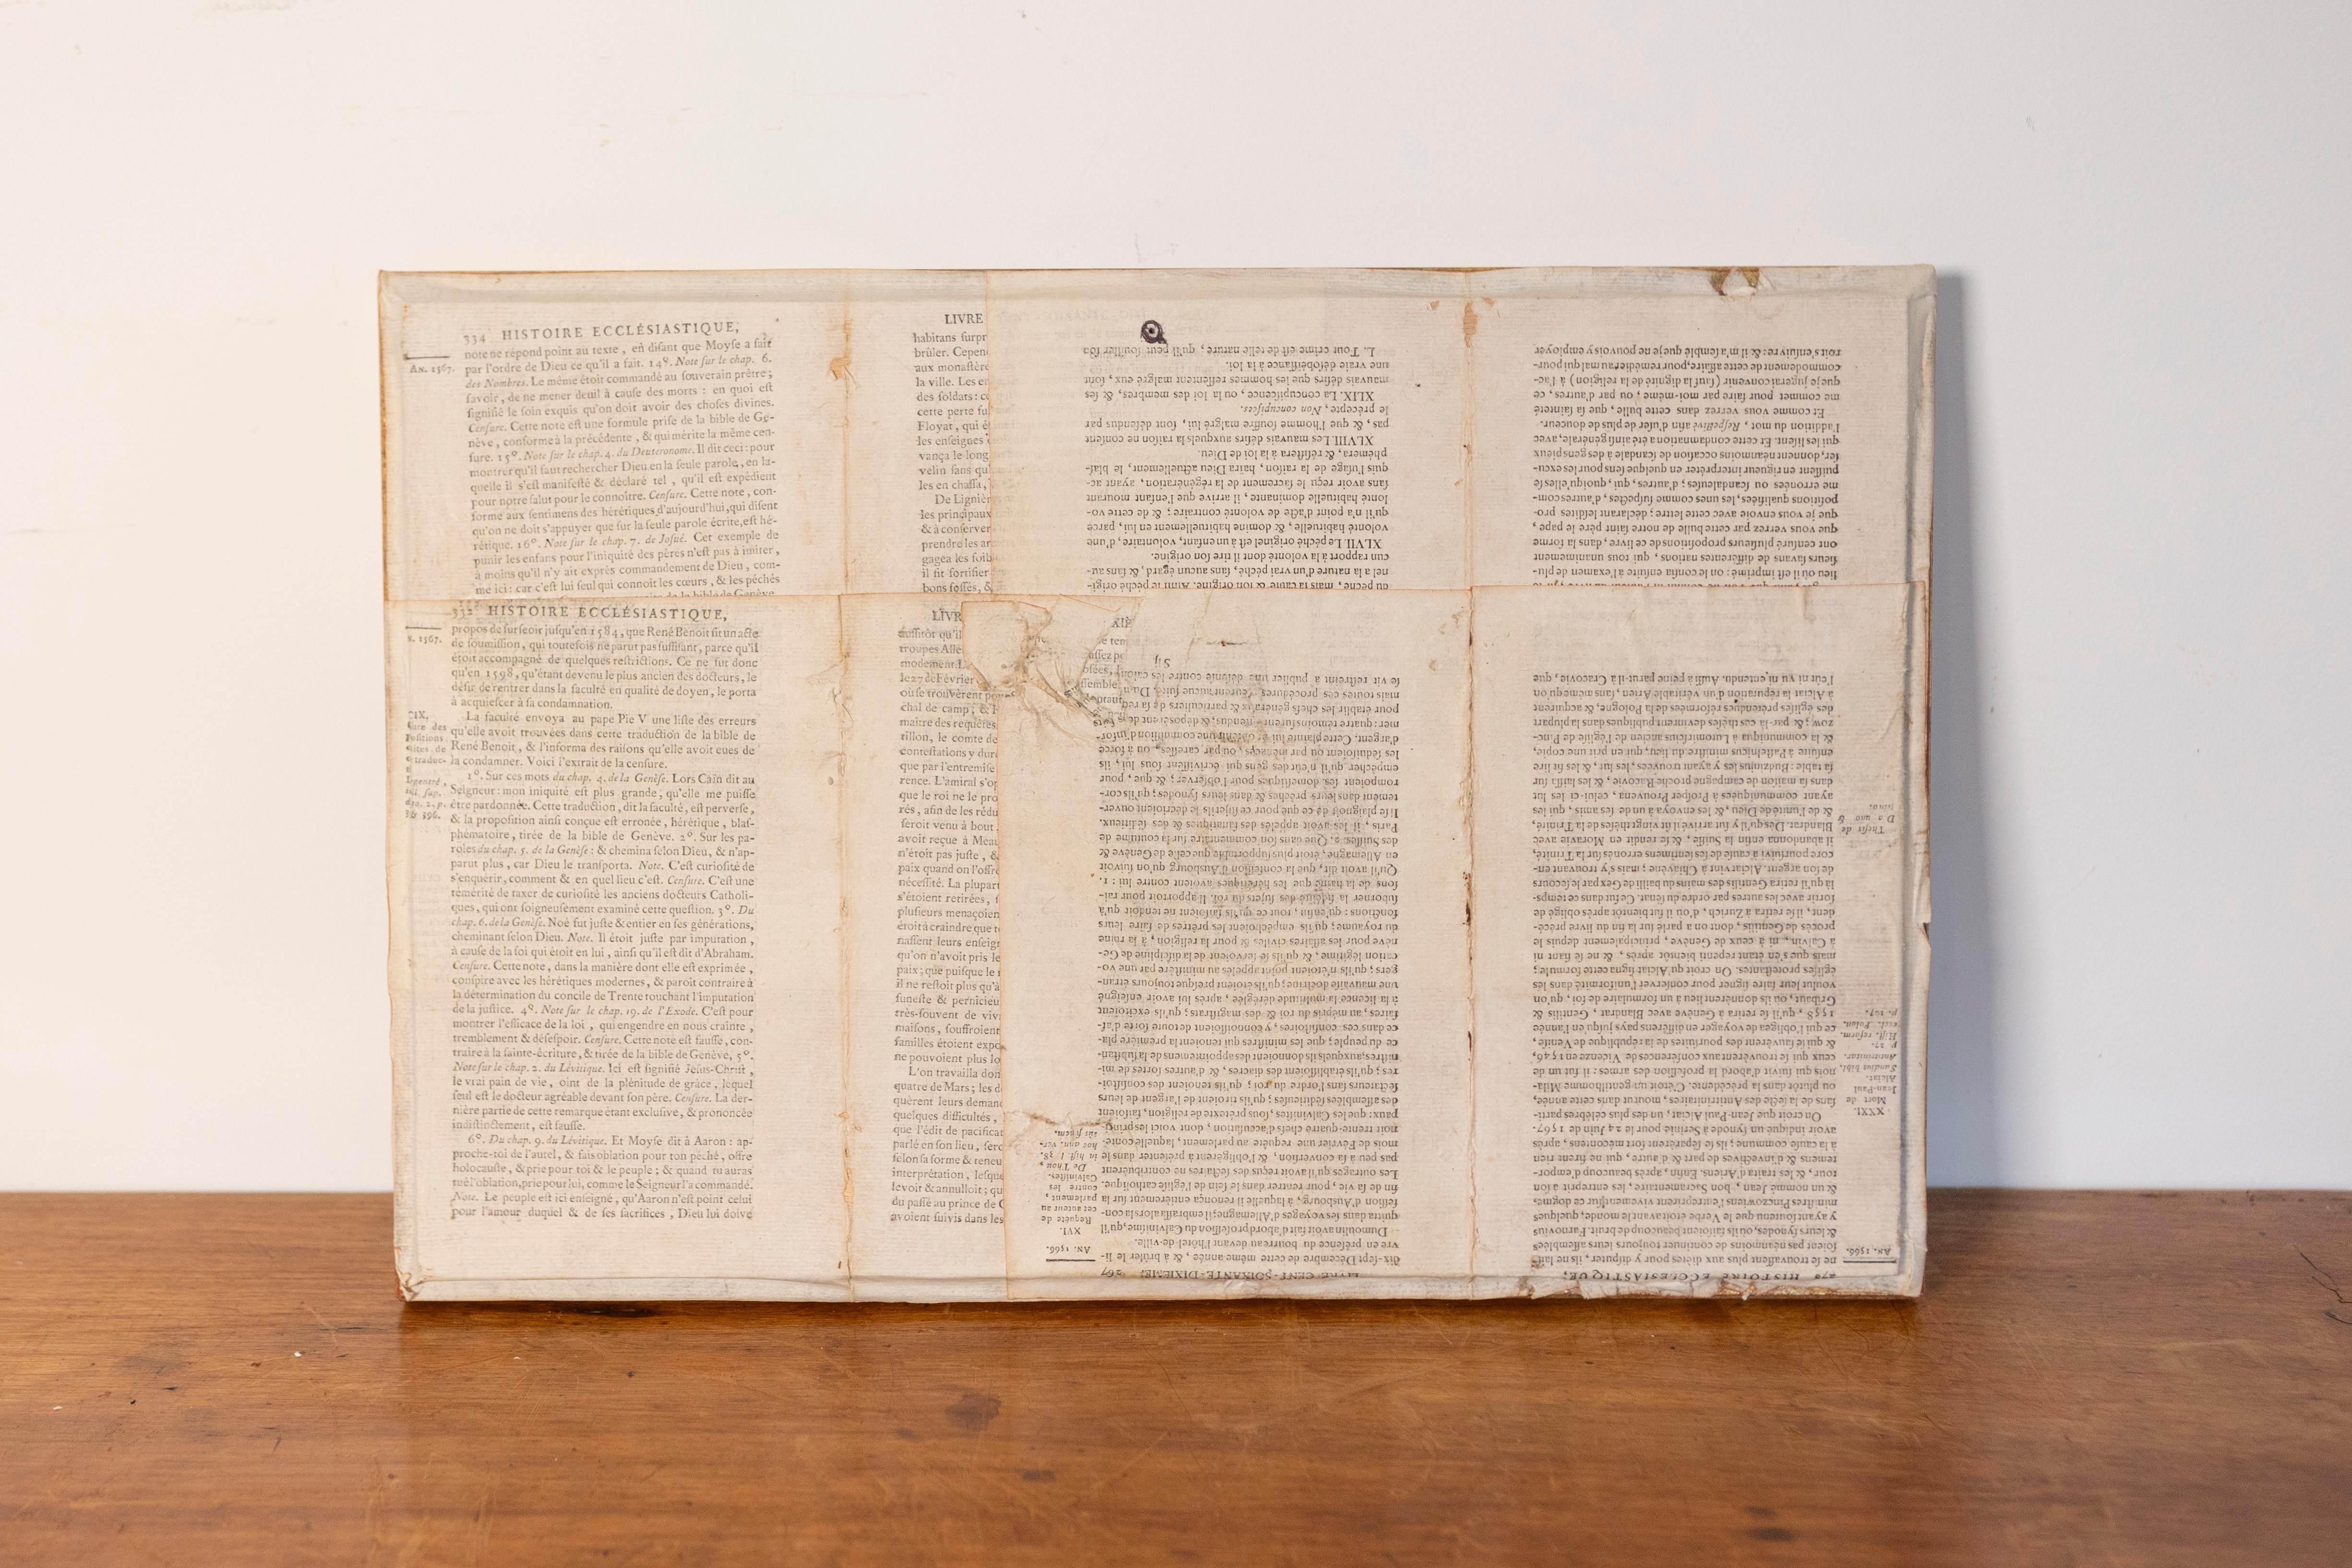 334 HISTOIRE ECCLÉSIASTIQUE,
An. 1567.
note ne répond point au texte, en diſant que Moyſe a fait
par l'ordre de Dieu ce qu'il a fait. 14°. Note ſur le chap. 6.
des Nombres. Le même étoit commandé au ſouverain prêtre;
ſavoir, de ne mener deuil à cauſe des morts : en quoi eſt
ſignifié le ſoin exquis qu'on doit avoir des choſes divines.
Cenſure. Cette note eſt une formule priſe de la bible de Ge-
nève, conforme à la précédente, & qui mérite la même cen-
ſure. 15°. Note ſur le chap. 4. du Deuteronome. Il dit ceci : pour
montrer qu'il faut rechercher Dieu en la ſeule parole, en la-
quelle il s'eſt manifeſté & déclaré tel, qu'il eſt expédient
pour notre ſalut pour le connoître. Cenſure. Cette note, con-
forme aux ſentimens des hérétiques d'aujourd'hui, qui diſent
qu'on ne doit s'appuyer que ſur la ſeule parole écrite, eſt hé-
rétique. 16°. Note ſur le chap. 7. de Joſué. Cet exemple de
punir les enfans pour l'iniquité des pères n'eſt pas à imiter,
à moins qu'il n'y ait exprès commandement de Dieu, com-
me ici : car c'eſt lui ſeul qui connoît les cœurs, & les péchés
de la bible de Genève
LIVRE
habitans ſurpr
brûler. Cepen
aux monaſtère
la ville. Les en
des ſoldats : ce
cette perte fu
Floyat, qui é
les enſeignes
vança le long
velin ſans qu
les en chaſſa,
De Lignièr
les principaux
& à conſerver
prendre les ar
gagea les ſoib
il fit fortifier
bons foſſés, &
332 HISTOIRE ECCLÉSIASTIQUE,
n. 1567.
propos de ſurſeoir juſqu'en 1584, que René Benoit fit un acte
de ſoumiſſion, qui toutefois ne parut pas ſuffiſant, parce qu'il
étoit accompagné de quelques reſtrictions. Ce ne fut donc
qu'en 1598, qu'étant devenu le plus ancien des docteurs, le
déſir de rentrer dans la faculté en qualité de doyen, le porta
à acquieſcer à ſa condamnation.
La faculté envoya au pape Pie V une liſte des erreurs
qu'elle avoit trouvées dans cette traduction de la bible de
René Benoit, & l'informa des raiſons qu'elle avoit eues de
la condamner. Voici l'extrait de la cenſure.
1°. Sur ces mots du chap. 4. de la Genèſe. Lors Caïn dit au
Seigneur : mon iniquité eſt plus grande, qu'elle me puiſſe
être pardonnée. Cette traduction, dit la faculté, eſt perverſe,
& la propoſition ainſi conçue eſt erronée, hérétique, blaſ-
phématoire, tirée de la bible de Genève. 2°. Sur les pa-
roles du chap. 5. de la Genèſe : & chemina ſelon Dieu, & n'ap-
parut plus, car Dieu le tranſporta. Note. C'eſt curioſité de
s'enquérir, comment & en quel lieu c'eſt. Cenſure. C'eſt une
témérité de taxer de curioſité les anciens docteurs Catholi-
ques, qui ont ſoigneuſement examiné cette queſtion. 3°. Du
chap. 6. de la Genèſe. Noé fut juſte & entier en ſes générations,
cheminant ſelon Dieu. Note. Il étoit juſte par imputation,
à cauſe de la foi qui étoit en lui, ainſi qu'il eſt dit d'Abraham.
Cenſure. Cette note, dans la manière dont elle eſt exprimée,
conſpire avec les hérétiques modernes, & paroît contraire à
la détermination du concile de Trente touchant l'imputation
de la juſtice. 4°. Note ſur le chap. 19. de l'Exode. C'eſt pour
montrer l'efficace de la loi, qui engendre en nous crainte,
tremblement & déſeſpoir. Cenſure. Cette note eſt fauſſe, con-
traire à la ſainte-écriture, & tirée de la bible de Genève, 5°.
Note ſur le chap. 2. du Lévitique. Ici eſt ſignifié Jeſus-Chriſt,
le vrai pain de vie, oint de la plénitude de grâce, lequel
ſeul eſt le docteur agréable devant ſon père. Cenſure. La der-
nière partie de cette remarque étant excluſive, & prononcée
indiſtinctement, eſt fauſſe.
6°. Du chap. 9. du Lévitique. Et Moyſe dit à Aaron : ap-
proche-toi de l'autel, & fais oblation pour ton péché, offre
holocauſte, & prie pour toi & le peuple; & quand tu auras
tué l'oblation, prie pour lui, comme le Seigneur l'a commandé.
Note. Le peuple eſt ici enſeigné, qu'Aaron n'eſt point celui
pour l'amour duquel & de ſes ſacrifices, Dieu lui doive
LIVR
auſſitôt qu'il
troupes Alle
modement. L
le 27 de Février
où ſe trouvèrent
chal de camp, & l
maître des requêtes
tillon, le comte de
conteſtations y dur
que par l'entremiſe
rence. L'amiral s'op
que le roi ne le pro
rés, afin de les rédu
ſeroit venu à bout
avoit reçue à Meau
n'étoit pas juſte, &
paix quand on l'offr
néceſſité. La plupart
s'étoient retirées, ſ
pluſieurs menaçoien
étoit à craindre que
naſſent leurs enſeign
qu'on n'avoit pris le
paix; que puiſque le r
il ne reſtoit plus qu'à
funeſte & pernicieu
très-ſouvent de viv
maiſons, ſouffroient
familles étoient expo
ne pouvoient plus lo
L'on travailla don
quatre de Mars; les d
quèrent leurs deman
quelques difficultés,
que l'édit de pacificat
parlé en ſon lieu, ſero
ſelon ſa forme & teneu
interprétation, leſque
levoit & annulloit; qu
du paſſé au prince de C
avoient ſuivis dans les
ou péché, mais ſa cauſe & ſon origine. Ainſi le péché origi-
nel a la nature d'un vrai péché, ſans aucun égard, & ſans au-
cun rapport à la volonté dont il tire ſon origine.
XLVII. Le péché originel eſt à un enfant, volontaire, d'une
volonté habituelle, & domine habituellement en lui, parce
qu'il n'a point d'acte de volonté contraire; & de cette vo-
lonté habituelle dominante, il arrive que l'enfant mourant
ſans avoir reçu le ſacrement de la régénération, ayant ac-
quis l'uſage de la raiſon, haïra Dieu actuellement, le blaſ-
phémera, & réſiſtera à la loi de Dieu.
XLVIII. Les mauvais déſirs auxquels la raiſon ne conſent
pas, & que l'homme ſouffre malgré lui, ſont défendus par
le précepte, Non concupiſces.
XLIX. La concupiſcence, ou la loi des membres, & ſes
mauvais déſirs que les hommes reſſentent malgré eux, ſont
une vraie déſobéiſſance à la loi.
L. Tout crime eſt de telle nature, qu'il peut ſouiller ſon
lieu où il eſt imprimé : on le confia enſuite à l'examen de plu-
ſieurs ſavans de différentes nations, qui tous unanimement
ont cenſuré pluſieurs propoſitions de ce livre, dans la forme
que vous verrez par cette bulle de notre ſaint père le pape,
que je vous envoie avec cette lettre; déclarant leſdites pro-
poſitions qualifiées, les unes comme ſuſpectes, d'autres com-
me erronées ou ſcandaleuſes; d'autres, qui, quoiqu'elles ſe
puiſſent en rigueur interpréter en quelque ſens pour les excu-
ſer, donnent néanmoins occaſion de ſcandale à des gens pieux
qui les liſent. Et cette condamnation a été ainſi générale, avec
l'addition du mot, Reſpectivè afin d'uſer de plus de douceur.
Et comme vous verrez dans cette bulle, que ſa ſainteté
me commet pour faire par moi-même, ou par d'autres, ce
que je jugerai convenir (ſauf la dignité de la religion) à l'ac-
commodement de cette affaire, pour remédier au mal qui pour-
roit s'enſuivre : & il m'a ſemblé que je ne pouvois y employer
LIVRE CENT-SOIXANTE-DIXIÈME. 267
An. 1566.
dix-ſept Décembre de cette même année, & à brûler le li-
vre en préſence du bourreau devant l'hôtel-de-ville.
Dumoulin avoit fait d'abord profeſſion du Calviniſme, qu'il
quitta dans ſes voyages d'Allemagne; il embraſſa alors la con-
feſſion d'Auſbourg, à laquelle il renonça entièrement ſur la
fin de ſa vie, pour rentrer dans le ſein de l'égliſe catholique.
Les outrages qu'il avoit reçus des ſectaires ne contribuèrent
pas peu à ſa converſion, & l'obligèrent à préſenter dans le
mois de Février une requête au parlement, laquelle conte-
noit trente-quatre chefs d'accuſation, dont voici les princi-
paux : que les Calviniſtes, ſous prétexte de religion, faiſoient
des aſſemblées ſéditieuſes; qu'ils tiroient de l'argent de leurs
ſectateurs ſans l'ordre du roi; qu'ils tenoient des conſiſtoi-
res; qu'ils établiſſoient des diacres, & d'autres ſortes de mi-
niſtres, auxquels ils donnoient des appointemens de la ſubſtan-
ce du peuple; que les miniſtres qui tenoient la première pla-
ce dans ces conſiſtoires, y connoiſſoient de toute ſorte d'af-
faires, au mépris du roi & des magiſtrats; qu'ils excitoient
à la licence la multitude déréglée, après lui avoir enſeigné
une mauvaiſe doctrine; qu'ils étoient preſque toujours étran-
gers; qu'ils n'étoient point appelés au miniſtère par une vo-
cation légitime, & qu'ils ſe ſervoient de la diſcipline de Ge-
nève pour les affaires civiles & pour la religion, à la ruine
du royaume; qu'ils empêchoient les prêtres de faire leurs
fonctions; qu'enfin, tout ce qu'ils faiſoient ne tendoit qu'à
ſuborner la fidélité des ſujets du roi. Il apportoit pour rai-
ſons de la haine que les hérétiques avoient contre lui : 1.
Qu'il avoit dit, que la confeſſion d'Auſbourg qu'on ſuivoit
en Allemagne, étoit plus ſupportable que celle de Genève &
des Suiſſes. 2. Que dans ſon commentaire ſur la coutume de
Paris, il les avoit appelés des fanatiques & des ſéditieux.
Il ſe plaignoit de ce que pour ce ſujet ils le décrioient ouver-
tement dans leurs prêches & dans leurs ſynodes; qu'ils cor-
rompoient ſes domeſtiques pour l'obſerver; & que, pour
empêcher qu'il n'eût des gens qui écriviſſent ſous lui, ils
les ſéduiſoient ou par menaces, ou par careſſes, ou à force
d'argent. Cette plainte lui fit obtenir une commiſſion d'infor-
mer : quatre témoins furent entendus; & dépoſèrent de
pour établir les chefs généraux & particuliers de ſa
mais toutes ces procédures n'eurent aucune ſuite, Dum
ſe vit reſtreint à publier une défenſe contre les calom
XVI.
Requête de
cet auteur au
parlement,
contre les
Calviniſtes.
De Thou,
in hiſt. l. 38.
hoc ann. ver-
sùs finem.
270 HISTOIRE ECCLÉSIASTIQUE,
An. 1566.
ſe ne trouvaſſent plus aux diètes pour y diſputer, ils ne laiſ-
ſoient pas néanmoins de continuer toujours leurs aſſemblées
& leurs ſynodes, où ils faiſoient beaucoup de bruit. Farnovius
y ayant ſoutenu que le Verbe étoit avant le monde, quelques
miniſtres Pinczowiens l'entreprirent vivement ſur ce dogme,
& un nommé Jean, bon Sacramentaire, les entreprit à ſon
tour, & les traita d'Ariens. Enfin, après beaucoup d'empor-
temens & d'invectives de part & d'autre, qui ne firent rien
à la cauſe commune; ils ſe ſéparèrent fort mécontens, après
avoir indiqué un ſynode à Serinie pour le 24 Juin de 1567.
On croit que Jean-Paul Alciat, un des plus célèbres parti-
ſans de la ſecte des Antitrinitaires, mourut dans cette année,
ou plutôt dans la précédente. C'étoit un gentilhomme Mila-
nois qui ſuivit d'abord la profeſſion des armes : il fut un de
ceux qui ſe trouvèrent aux conférences de Vicenze en 1546,
& qui ſe ſauvèrent des pourſuites de la république de Veniſe,
ce qui l'obligea de voyager en différens pays juſqu'en l'année
1558, qu'il ſe retira à Genève avec Blandrat, Gentilis &
Gribaut, où ils donnèrent lieu à un formulaire de foi, qu'on
voulut leur faire ſigner pour conſerver l'uniformité dans les
égliſes proteſtantes. On croit qu'Alciat ſigna cette formule;
mais que s'en étant repenti bientôt après, & ne ſe fiant ni
à Calvin, ni à ceux de Genève, principalement depuis le
procès de Gentilis, dont on a parlé ſur la fin du livre précé-
dent, il ſe retira à Zurich, d'où il fut bientôt après obligé de
ſortir avec les autres par ordre du ſénat. Ce fut dans ce temps-
là qu'il retira Gentilis des mains du bailli de Gex par le ſecours
de ſon argent. Alciat vint à Chiavène; mais s'y trouvant en-
core pourſuivi à cauſe de ſes ſentimens erronés ſur la Trinité,
il abandonna enfin la Suiſſe, & ſe rendit en Moravie avec
Blandrat. Dès qu'il y fut arrivé il fit vingt thèſes de la Trinité,
& de l'unité de Dieu, & les envoya à un de ſes amis, qui les
ayant communiquées à Proſper Provenna, celui-ci les lut
dans ſa maiſon de campagne proche Racovie, & les laiſſa ſur
ſa table : Budzinius les y ayant trouvées, les lut, & les fit lire
enſuite à Paſteliſcus miniſtre du lieu, qui en prit une copie,
& la communiqua à Lutomirſcius ancien de l'égliſe de Pinc-
zow; & par-là ces thèſes devinrent publiques dans la plupart
des égliſes prétendues réformées de la Pologne, & acquirent
à Alciat la réputation d'un véritable Arien, ſans même qu'on
l'eût ni vu ni entendu. Auſſi à peine parut-il à Cracovie, que
XXXI.
Mort de
Jean-Paul
Alciat.
Sandius bibl.
Antitrinitar.
p. 27.
Hiſt. reform.
eccl. Polon.
p. 107.
Theſes de
D o uno &
trino.